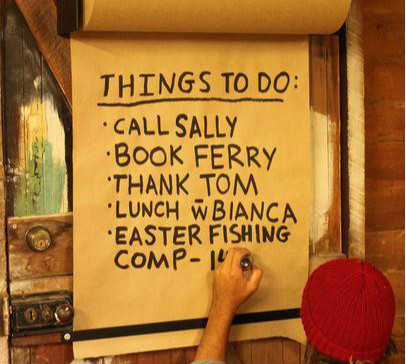 THINGS TO DO:
· CALL SALLY
· BOOK FERRY
· THANK TOM
· LUNCH w̄ BIANCA
· EASTER FISHING
COMP - 14